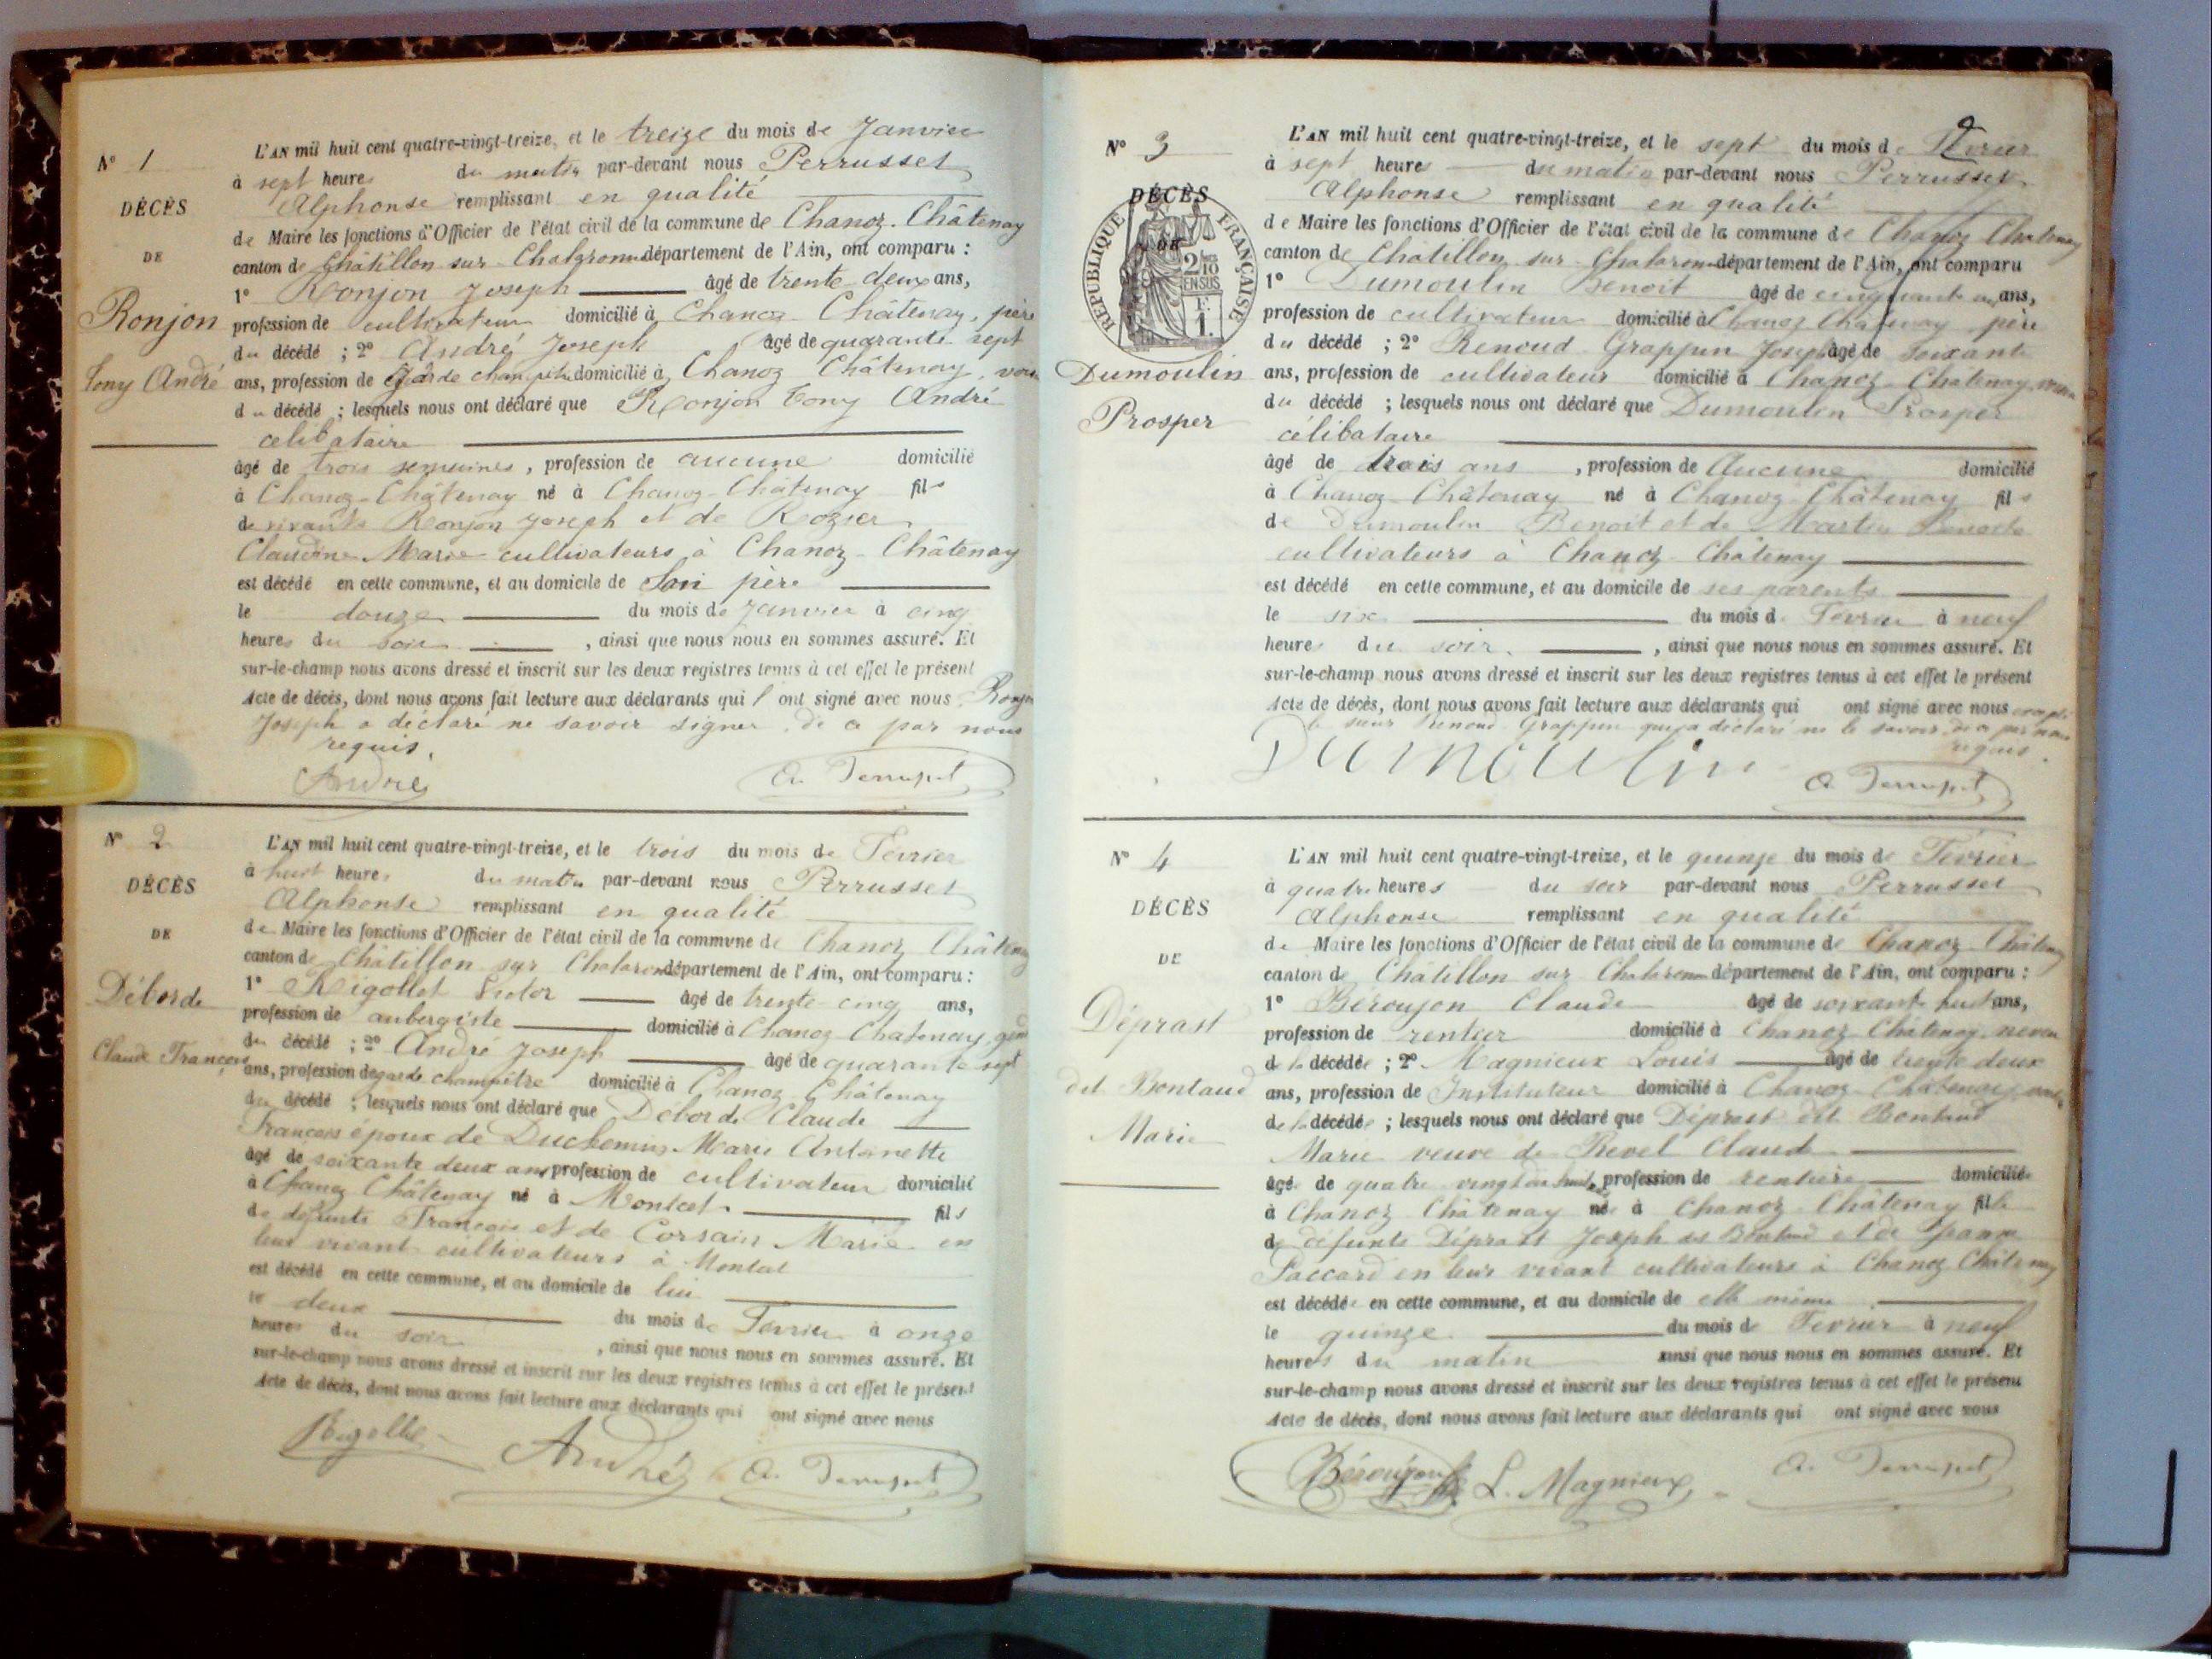 N° 1
DÉCÈS
DE
Ronjon
Tony André
L'AN mil huit cent quatre-vingt-treize, et le treize du mois de Janvier
à sept heures du matin par-devant nous Perrusset
Alphonse remplissant en qualité
de Maire les fonctions d'Officier de l'état civil de la commune de Chanoz-Châtenay
canton de Châtillon sur Chalaronne département de l'Ain, ont comparu :
1° Ronjon Joseph âgé de trente deux ans,
profession de cultivateur domicilié à Chanoz-Châtenay, père
du décédé ; 2° André Joseph âgé de quarante sept
ans, profession de Garde champêtre domicilié à Chanoz Châtenay,
du décédé ; lesquels nous ont déclaré que Ronjon Tony André
célibataire
âgé de trois semaines, profession de aucune domicilié
à Chanoz-Châtenay né à Chanoz-Châtenay fils
de vivants Ronjon Joseph et de Rozier
Claudine Marie cultivateurs à Chanoz-Châtenay
est décédé en cette commune, et au domicile de Son père
le douze du mois de Janvier à cinq
heures du soir, ainsi que nous nous en sommes assuré. Et
sur-le-champ nous avons dressé et inscrit sur les deux registres tenus à cet effet le présent
Acte de décès, dont nous avons fait lecture aux déclarants qui l'ont signé avec nous Ronjon
Joseph a déclaré ne savoir signer, de ce par nous
requis.
André A. Perrusset
N° 2
DÉCÈS
DE
Déborde
Claude François
L'AN mil huit cent quatre-vingt-treize, et le trois du mois de Février
à huit heures du matin par-devant nous Perrusset
Alphonse remplissant en qualité
de Maire les fonctions d'Officier de l'état civil de la commune de Chanoz Châtenay
canton de Châtillon sur Chalaronne département de l'Ain, ont comparu :
1° Rigollet Victor âgé de trente-cinq ans,
profession de aubergiste domicilié à Chanoz Chatenay,
du décédé ; 2° André Joseph âgé de quarante sept
ans, profession de garde champêtre domicilié à Chanoz Châtenay
du décédé ; lesquels nous ont déclaré que Déborde Claude
François époux de Duchemin Marie Antoinette
âgé de soixante deux ans profession de cultivateur domicilié
à Chanoz Châtenay né à Montcet fils
de défunts François et de Corsain Marie en
leur vivant cultivateurs à Montcet
est décédé en cette commune, et au domicile de lui
le deux du mois de Février à onze
heures du soir, ainsi que nous nous en sommes assuré. Et
sur-le-champ nous avons dressé et inscrit sur les deux registres tenus à cet effet le présent
Acte de décès, dont nous avons fait lecture aux déclarants qui ont signé avec nous
Rigollet André A. Perrusset
2
N° 3
DÉCÈS
DE
RÉPUBLIQUE FRANÇAISE
2/10 EN SUS
F. 1.
Dumoulin
Prosper
L'AN mil huit cent quatre-vingt-treize, et le sept du mois de Février
à sept heures du matin par-devant nous Perrusset
Alphonse remplissant en qualité
de Maire les fonctions d'Officier de l'état civil de la commune de Chanoz Chatenay
canton de Châtillon sur Chalaronne département de l'Ain, ont comparu
1° Dumoulin Benoit âgé de cinquante ans,
profession de cultivateur domicilié à Chanoz Châtenay père
du décédé ; 2° Renoud Grappin Joseph âgé de soixante
ans, profession de cultivateur domicilié à Chanoz-Châtenay, voisin
du décédé ; lesquels nous ont déclaré que Dumoulin Prosper
célibataire
âgé de trois ans, profession de Aucune domicilié
à Chanoz-Châtenay né à Chanoz-Châtenay fils
de Dumoulin Benoit et de Martin
cultivateurs à Chanoz-Châtenay
est décédé en cette commune, et au domicile de ses parents
le six du mois de Février à neuf
heures du soir, ainsi que nous nous en sommes assuré. Et
sur-le-champ nous avons dressé et inscrit sur les deux registres tenus à cet effet le présent
Acte de décès, dont nous avons fait lecture aux déclarants qui ont signé avec nous excepté
le sieur Renoud Grappin qui a déclaré ne le savoir de ce par nous
requis.
Dumoulin A. Perrusset
N° 4
DÉCÈS
DE
Déprast
dit Bontaud
Marie
L'AN mil huit cent quatre-vingt-treize, et le quinze du mois de Février
à quatre heures du soir par-devant nous Perrusset
Alphonse remplissant en qualité
de Maire les fonctions d'Officier de l'état civil de la commune de Chanoz-Châtenay
canton de Châtillon sur Chalaronne département de l'Ain, ont comparu :
1° Béroujon Claude âgé de soixante huit ans,
profession de rentier domicilié à Chanoz-Châtenay, neveu
de la décédée ; 2° Magnieux Louis âgé de trente deux
ans, profession de Instituteur domicilié à Chanoz-Châtenay
de la décédée ; lesquels nous ont déclaré que Déprast dit Bontaud
Marie veuve de Revel Claude
âgée de quatre vingt dix huit ans profession de rentière domiciliée
à Chanoz Châtenay née à Chanoz-Châtenay fille
de défunts Déprast Joseph dit Bontaud et de
Paccard en leur vivant cultivateurs à Chanoz Châtenay
est décédée en cette commune, et au domicile de elle même
le quinze du mois de Février à neuf
heures du matin ainsi que nous nous en sommes assuré. Et
sur-le-champ nous avons dressé et inscrit sur les deux registres tenus à cet effet le présent
Acte de décès, dont nous avons fait lecture aux déclarants qui ont signé avec nous
Béroujon L. Magnieux A. Perrusset